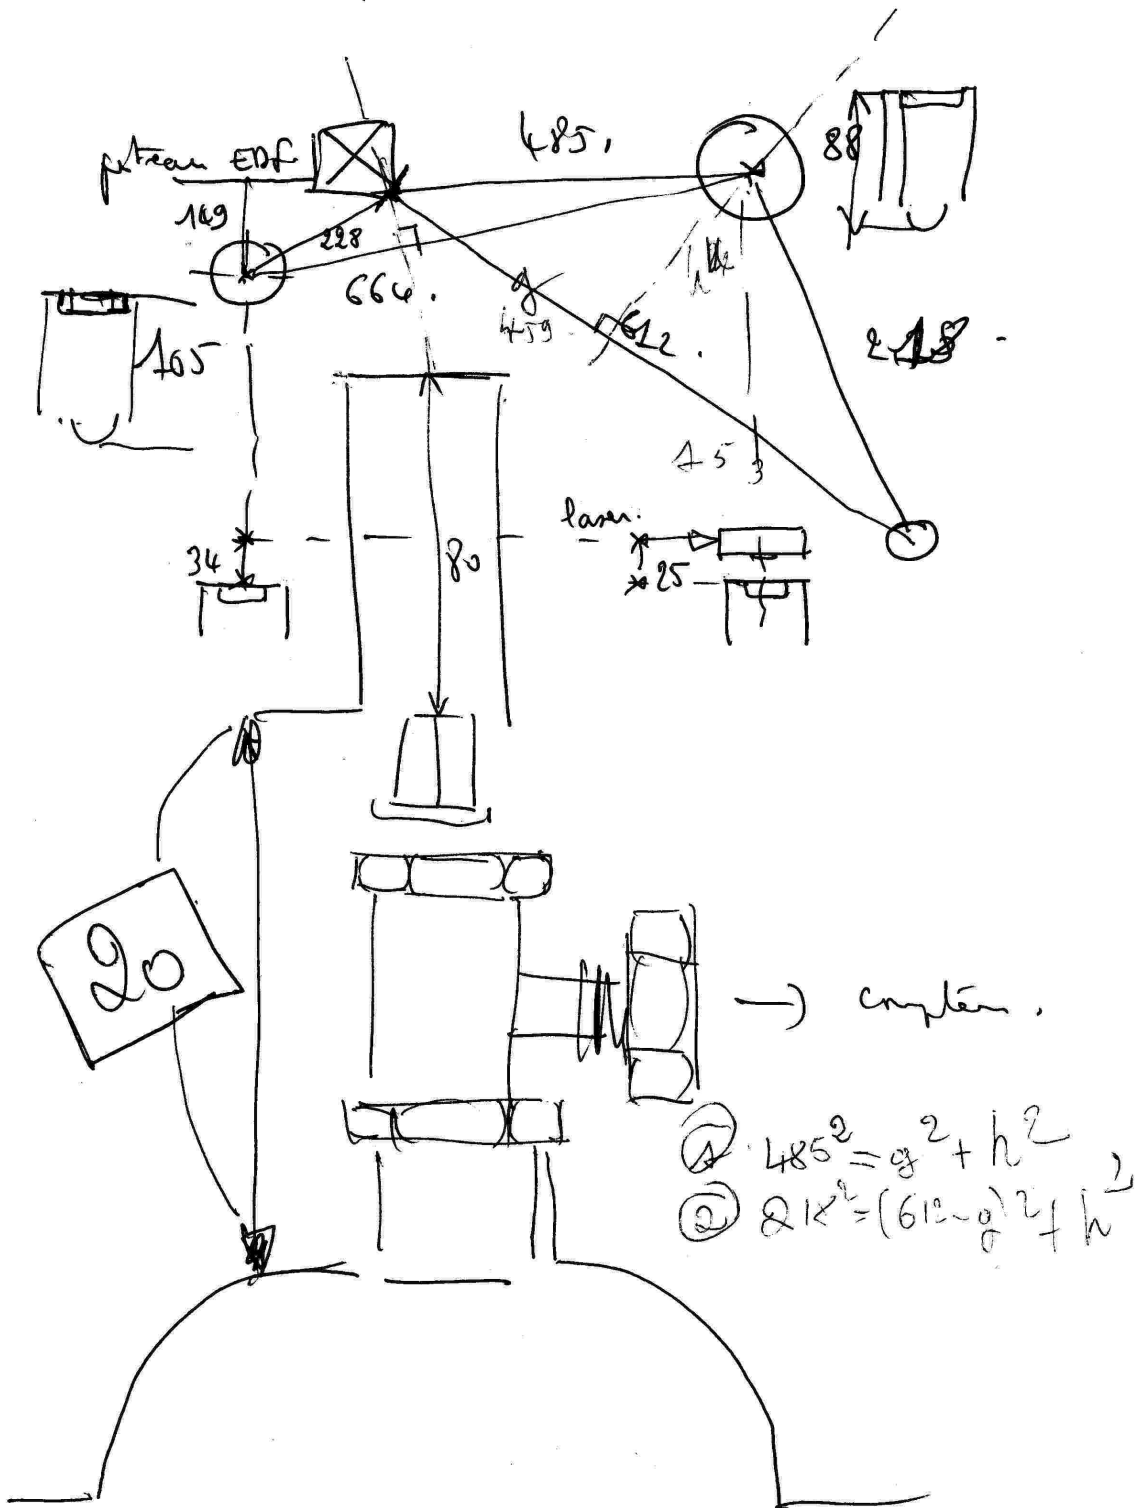 485.
poteau EDF
88
149
228
664.
g
459
612.
h
218
105
153
laser.
34
80
25
20
→ compteur.
① 485² = g² + h²
② 218² = (612-g)² + h²